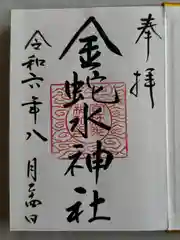 奉拝
金蛇水神社
令和六年八月二四日